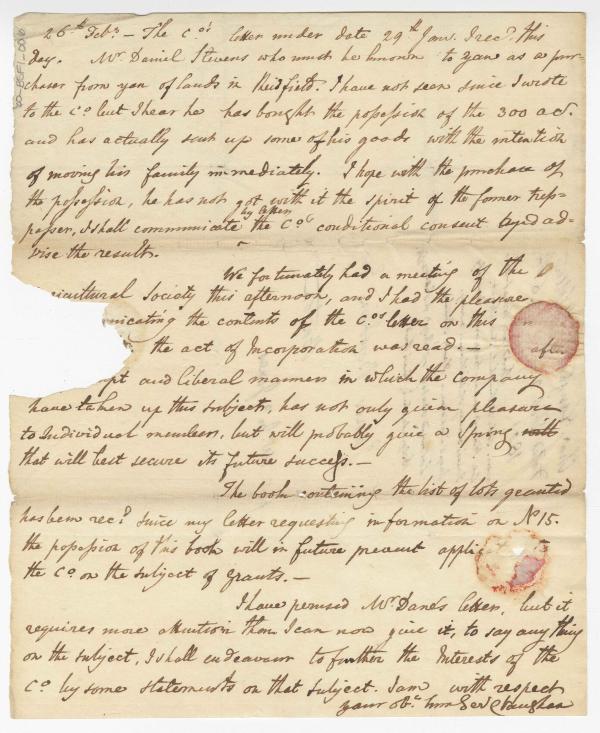 26th Feby - The Co's letter under date 29th Jan. I recd this
day. Mr Daniel Stevens who must be known to you as a pur-
chaser from you of lands in Readfield. I have not seen since I wrote
to the Co but I hear he has bought the possession of the 300 ac.
and has actually sent up some of his goods with the intention
of moving his family immediately. I hope with the purchase of
the possession, he has not got with it the spirit of the former tres-
by letter
passer, I shall communicate the Co's conditional consent and ad-
vise the result.
We fortunately had a meeting of the
ricultural Society this afternoon, and I had the pleasure
nicating the contents of the Co's letter on this
the act of Incorporation was read. - after
mpt and liberal manner in which the company
have taken up this subject, has not only given pleasure
to Individual members, but will probably give a Spring
that will best secure its future success. -
The book containing the list of lots granted
has been recd since my letter requesting information on No 15.
the possession of this book will in future prevent applic
the Co on the subject of grants. -
I have perused Mr Dane's letter, but it
requires more attention than I can now give it, to say any thing
on the subject, I shall endeavour to further the Interests of the
Co by some statements on that subject. I am with respect
your obt Servt Chs Vaughan